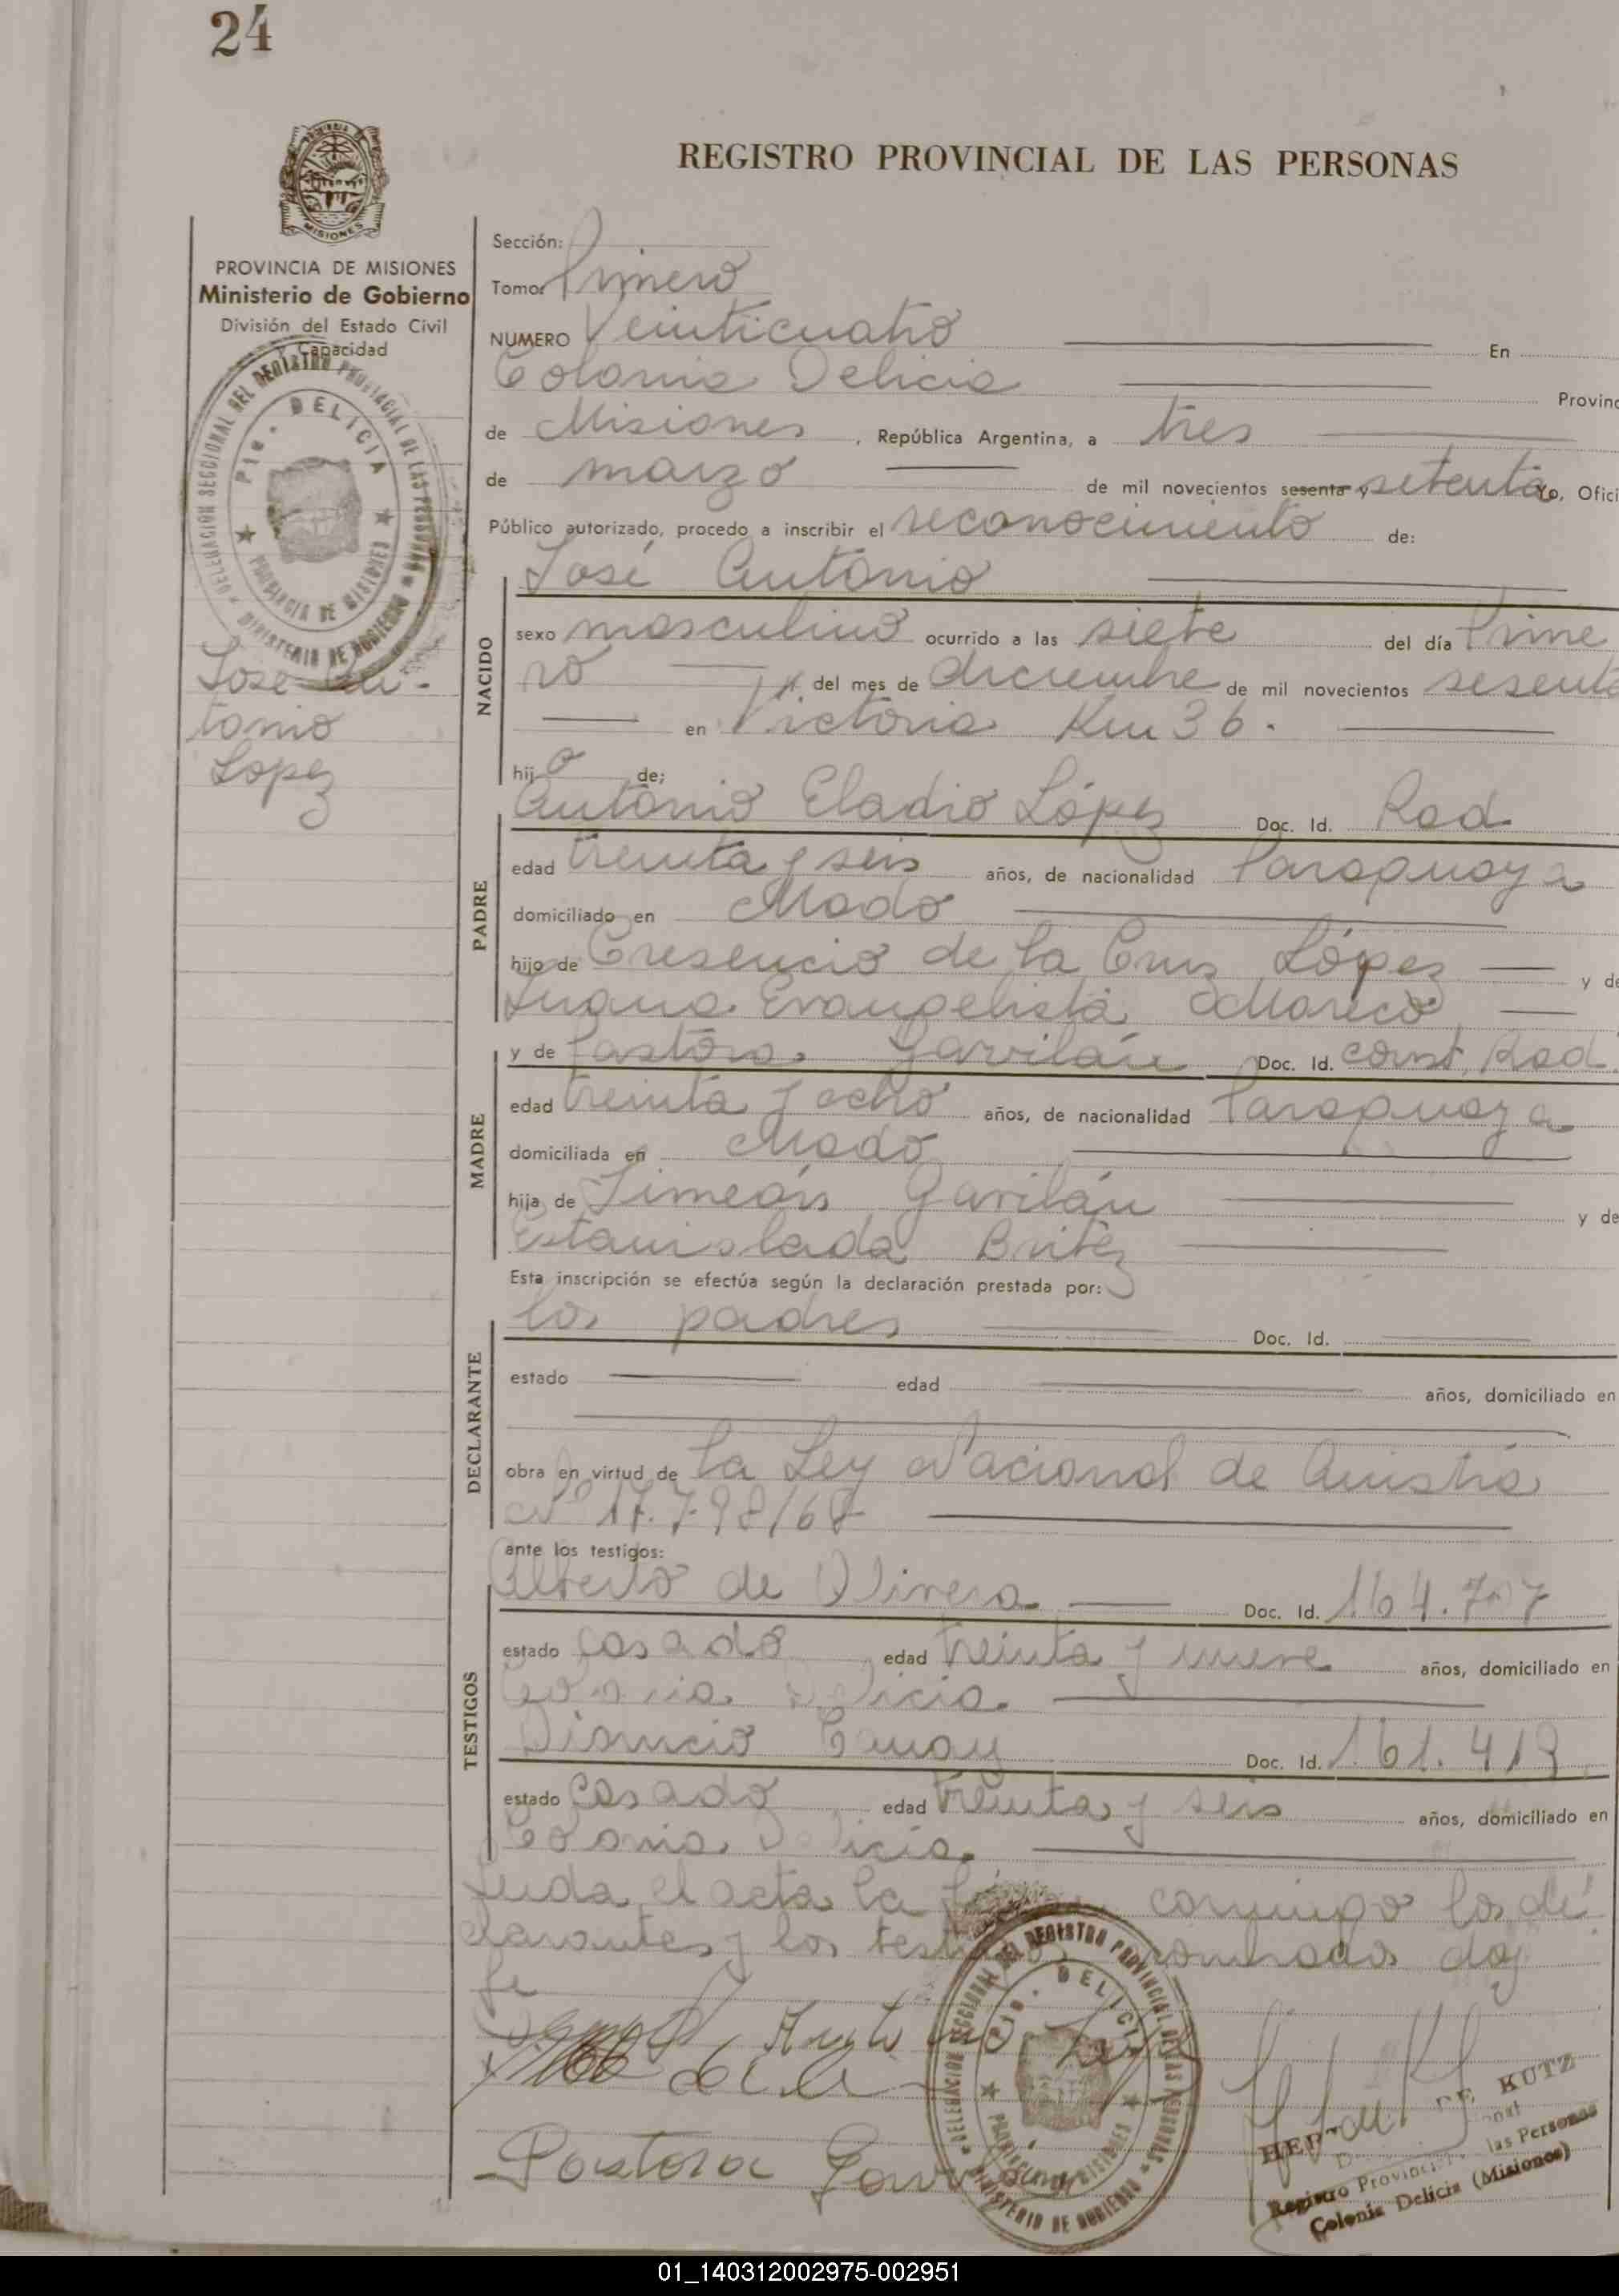 24
REGISTRO PROVINCIAL DE LAS PERSONAS
MISIONES
PROVINCIA DE MISIONES
Ministerio de Gobierno
División del Estado Civil
y Capacidad
DELEGACION SECCIONAL DEL REGISTRO PROVINCIAL DE LAS PERSONAS
Pto. DELICIA
PROVINCIA DE MISIONES
MINISTERIO DE GOBIERNO
José An-
tonio
Lopez
Sección:
Tomo: Primero
NUMERO Veinticuatro En
Colonia Delicia Provinc
de Misiones, República Argentina, a tres
de marzo de mil novecientos sesenta y setenta Yo, Ofici
Público autorizado, procedo a inscribir el reconocimiento de:
José Antonio
NACIDO
sexo masculino ocurrido a las siete del día Prime
ro del mes de diciembre de mil novecientos sesenta
en Victoria Km 36.
hijo de:
PADRE
Antonio Eladio López Doc. Id. Rad.
edad treinta y seis años, de nacionalidad Paraguaya
domiciliado en Mado
hijo de Cresencio de la Cruz López y de
Juana Evangelista Mareco
MADRE
y de Pastora Gavilán Doc. Id. const. Rad.
edad treinta y ocho años, de nacionalidad Paraguaya
domiciliada en Mado
hija de Simeón Gavilán y de
Estanislada Britez
Esta inscripción se efectúa según la declaración prestada por:
DECLARANTE
los padres Doc. Id.
estado edad años, domiciliado en
obra en virtud de la Ley Nacional de Amistia
Nº 17.798/68
ante los testigos:
TESTIGOS
Alberto de Olivera Doc. Id. 164.707
estado casado edad treinta y nueve años, domiciliado en
Colonia Delicia.
Doc. Id. 161.419
estado casado edad treinta y seis años, domiciliado en
Colonia Delicia.
Leida el acta la firman conmigo los de
clarantes y los testigos nombrados doy
fe
Antonio
Pastora Gavilan
DELEGACION SECCIONAL DEL REGISTRO PROVINCIAL DE LAS PERSONAS
Pto. DELICIA
PROVINCIA DE MISIONES
MINISTERIO DE GOBIERNO
DE KUTZ
las Personas
Registro Provincial
Colonia Delicia (Misiones)
01_140312002975-002951